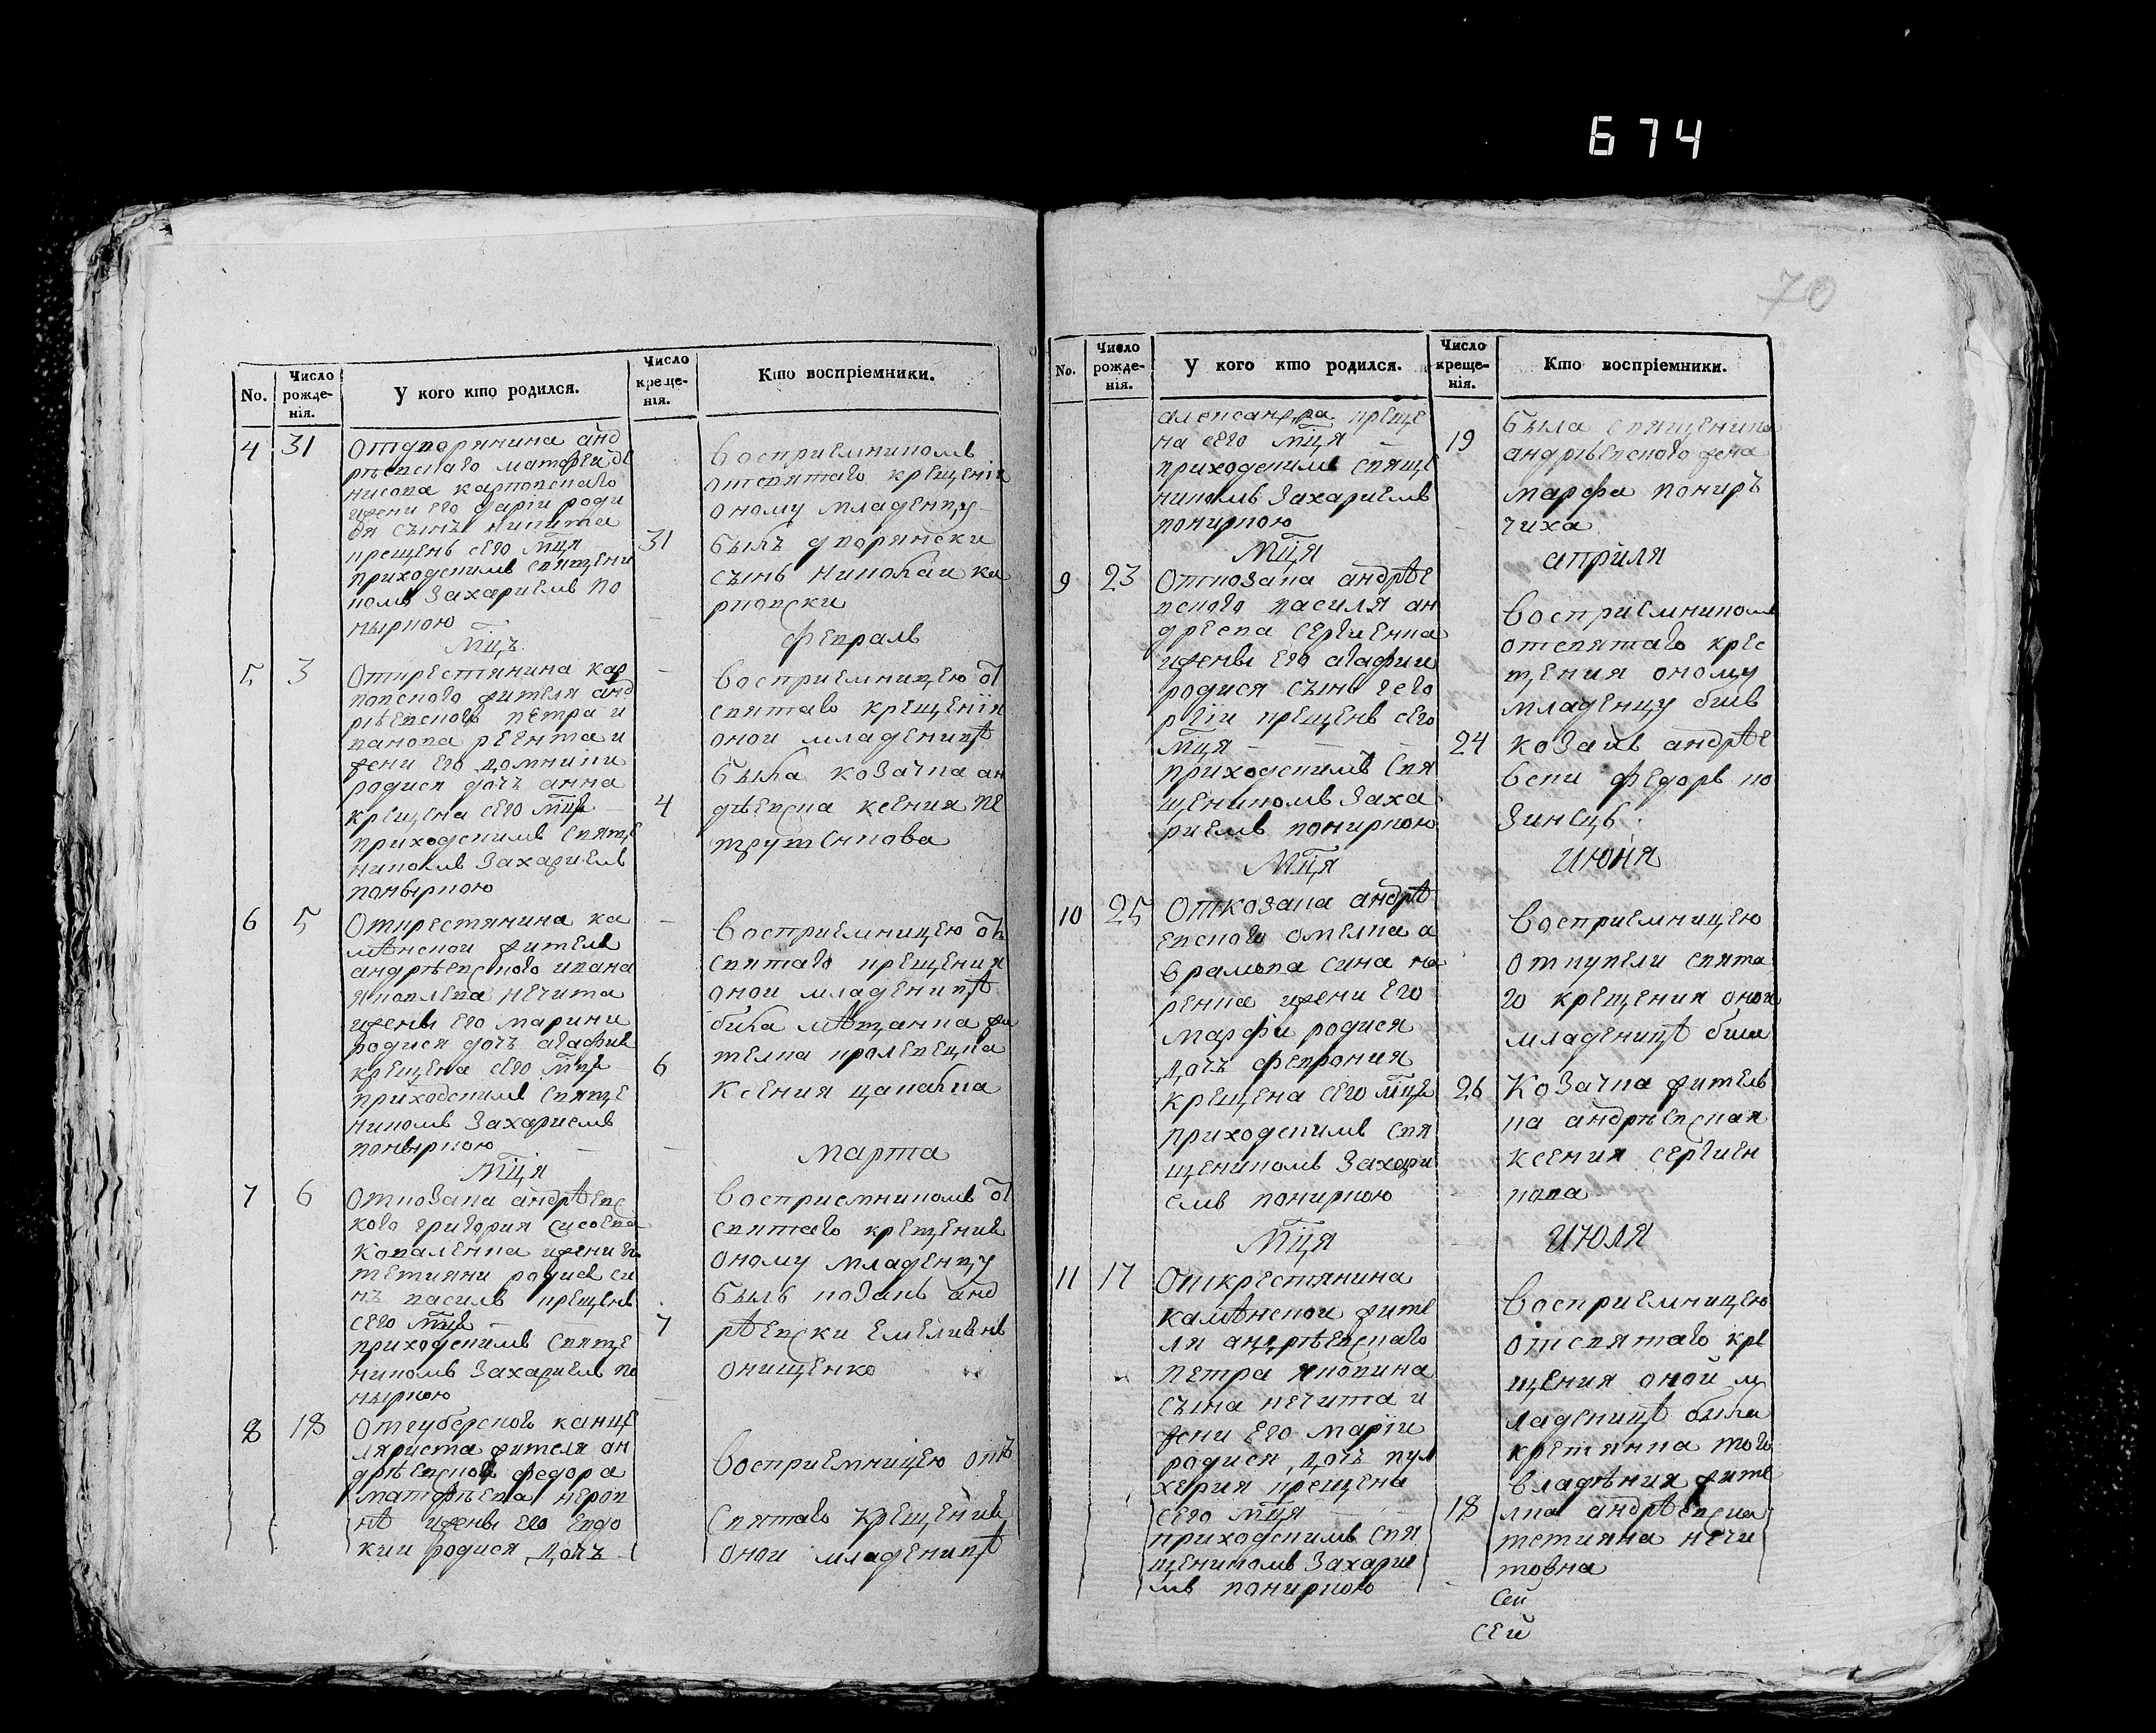 674
70
No.
Число рожде-нія.
У кого кто родился.
Число креще-нія.
Кто воспріемники.
4 31
Отдворянина анд
рѣевскаго матфеи де
нисова карповскаго
ижени его дарiи роди
ся сынъ никита
крещенъ сего мця 31
приходскимъ священи
комъ Захариемъ По
ныркою
Восприемникомъ
отсвятаго крещенiя
оному младенцу
былъ дворянски
сынъ николаи ка
рповски
Мцъ февраль
5 3
Открестянина кар
повского жителя анд
рѣевского петра и
ванова
жени его домники
родися дочъ анна
крещена сего мця 4
приходскимъ свяще
никомъ Захариемъ
поныркою
Восприемницею от
святаго крещенiя
оной младеницѣ
была козачка ан
дрѣевска ксения пе
трутенкова
6 5
Открестянина ка
мѣнскои жителъ
андрѣевского ивана
яковлева нечита
ижены его марини
родися дочъ агафия
крещена сего мця 6
приходскимъ свяще
никомъ Захариемъ
поныркою
Восприемницею отъ
святаго крещения
оной младеницѣ
била мѣщанка жи
телка кролевецка
Ксения цапалка
Мця марта
7 6
Откозака андрѣевс
кого григория сисоева
коваленка ижени его
тетияни родися си
нъ василъ крещенъ
сего мця 7
приходскимъ свяще
никомъ Захариемъ по
ныркою
Восприемникомъ от
святаго крещения
оному младенцу
былъ козакъ анд
рѣевски емелиянъ
онищенко
8 18
Отгуберского канце
ляриста жителя ан
дрѣевского федора
матфѣева
ижены его евдо
кии родися дочъ
Восприемницею отъ
святаго крещения
оной младеницѣ
No.
Число рожде-нія.
У кого кто родился.
Число креще-нія.
Кто воспріемники.
александра креще
на сего мця 19
приходскимъ свяще
никомъ Захариемъ
пониркою
была священика
андрѣевского жена
марфа понир
чиха
Мця априля
9 23
Откозака андрѣе
вского василя ан
дреева сергиенка
ижены его агафии
родися сынъ геге
ргiи крещенъ сего
мця 24
приходскимъ свя
щеникомъ Заха
риемъ пониркою
Восприемникомъ
отсвятаго крес
щения оному
младенцу билъ
козакъ андрѣе
вски федоръ ко
зинецъ
Мця июня
10 25
Откозака андрѣ
евского омелка а
врамова сина
ренка ижени его
марфи родися
дочъ феврония
крещена сего мця 26
приходскимъ свя
щеникомъ Захари
емъ пониркою
Восприемницею
откупели свята
го крещения оной
младеницѣ била
Козачка жителъ
ка андрѣевская
ксения сергиен
кова
Мця июля
11 17
Открестянина
камѣнской жите
ля андрѣевскаго
петра яковина
сына нечита и
жени его марiи
родися дочъ пул
херия крещена
сего мця 18
приходскимъ свя
щеникомъ Захарие
мъ пониркою
Восприемницею
отсвятаго кре
щения оной м
ладеницѣ была
крестянка того
владѣния жите
лка андрѣевска
тетияна нечи
товна
Сеи
сей